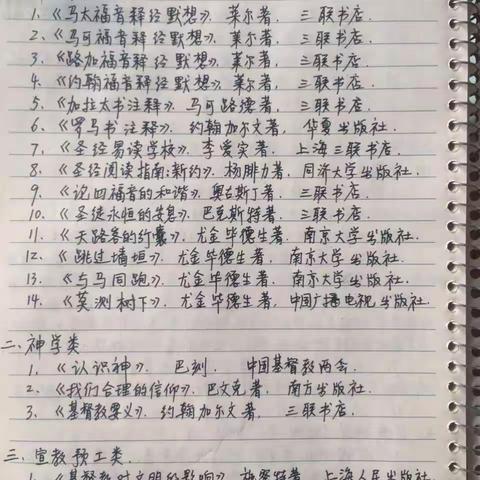 1、《马太福音释经默想》. 莱尔著, 三联书店.
2、《马可福音释经默想》. 莱尔著, 三联书店.
3、《路加福音释经默想》. 莱尔著, 三联书店.
4、《约翰福音释经默想》. 莱尔著, 三联书店.
5、《加拉太书注释》. 马可路德著, 三联书店.
6、《罗马书注释》. 约翰加尔文著, 华夏出版社.
7、《圣经易读学校》. 李爱实著, 上海三联书店.
8、《圣经阅读指南:新约》. 杨腓力著, 同济大学出版社.
9、《论四福音的和谐》. 奥古斯丁著, 三联书店.
10、《圣徒永恒的安息》. 巴克斯特著, 三联书店.
11、《天路客的行囊》. 尤金毕德生著, 南京大学出版社.
12、《跳过墙垣》. 尤金毕德生著, 南京大学出版社.
13、《与马同跑》. 尤金毕德生著, 南京大学出版社.
14、《莫测树下》. 尤金毕德生著, 中国广播电视出版社.
二、神学类
1、《认识神》. 巴刻. 中国基督教两会.
2、《我们合理的信仰》. 巴文克著, 南方出版社.
3、《基督教要义》. 约翰加尔文著, 三联书店.
三、宣教预工类.
1、《基督教对文明的影响》. 施密特著, 上海人民出版社.